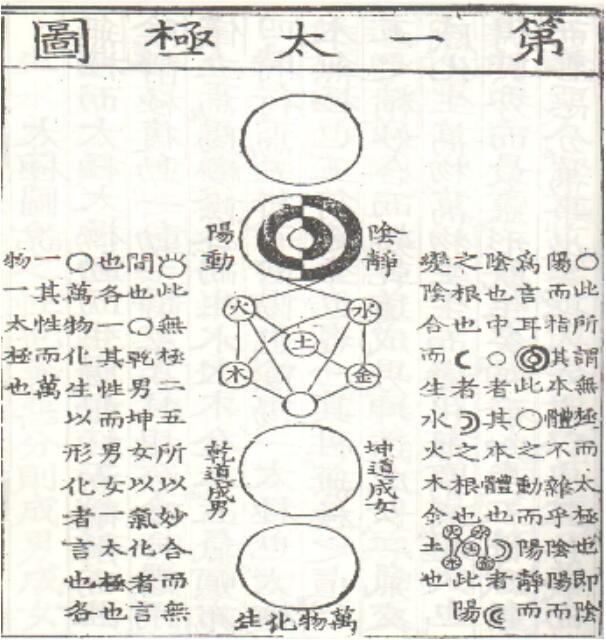 第一太極圖
○此所謂無極而太極也即陰
陽而指其本體不雜乎陰陽而
爲言耳◎此○之動而陽靜而
陰也中○者其本體也☽者☾
之根也☾者☽之根也水火土木金此陽
變陰合而生水火木金土也
陰靜
陽動
水
火
土
金
木
坤道成女
乾道成男
萬物化生
此無極二五所以妙合而無
間也○乾男坤女以氣化者言
也各一其性而男女一太極也
○萬物化生以形化者言也各
一其性而萬
物一太極也